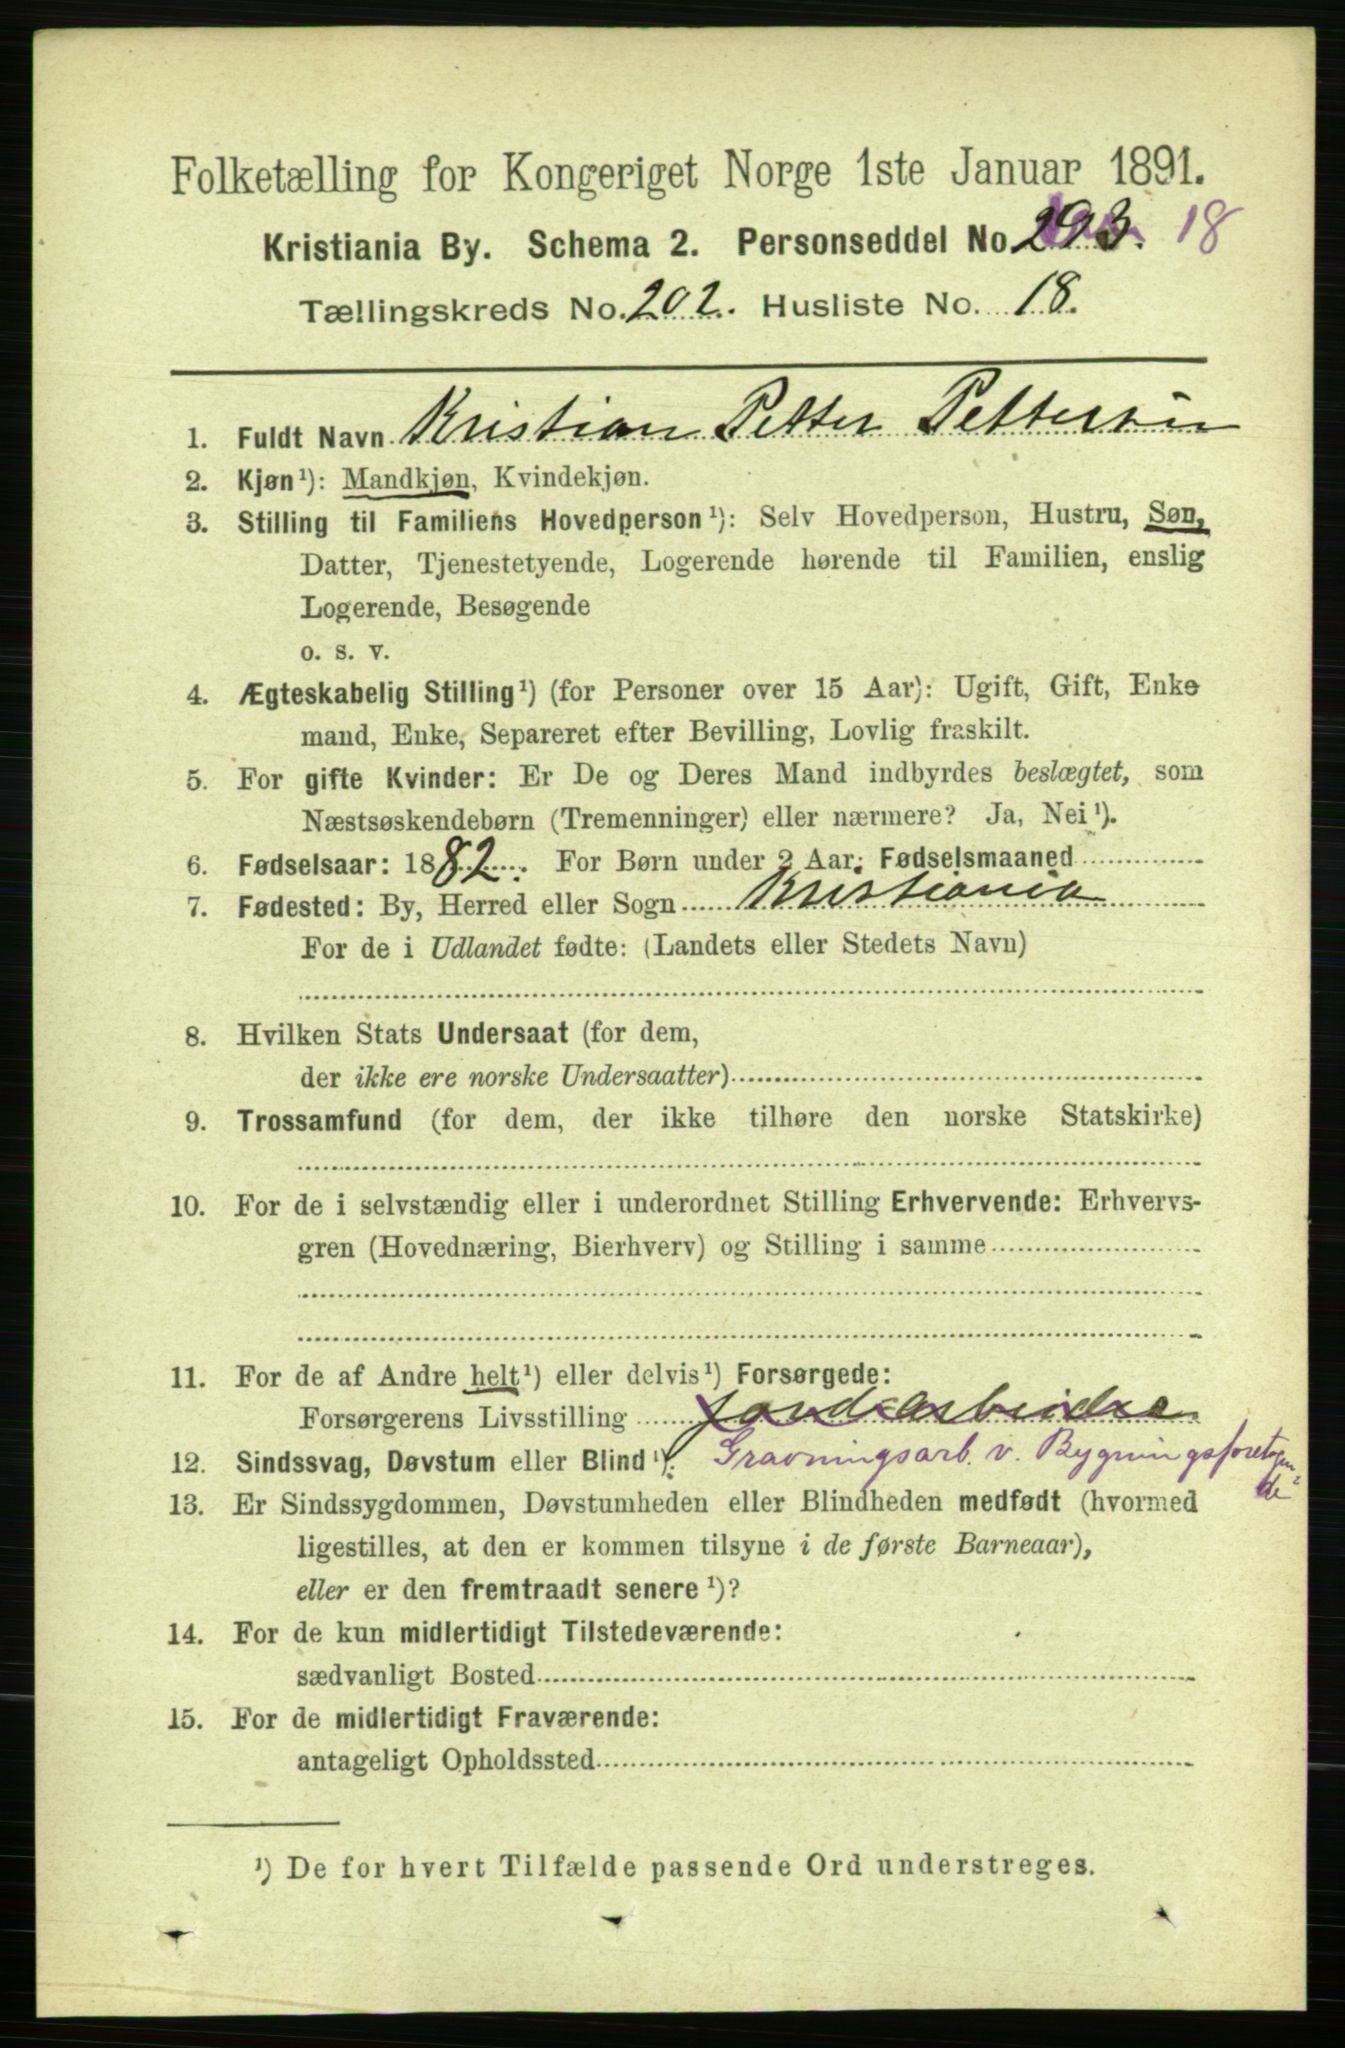 Folketælling for Kongeriget Norge 1ste Januar 1891.
Kristiania By. Schema 2. Personseddel No. 293. 18
Tællingskreds No. 202. Husliste No. 18.
1. Fuldt Navn Kristian Petter Pettersen
2. Kjøn¹): Mandkjøn, Kvindekjøn.
3. Stilling til Familiens Hovedperson¹): Selv Hovedperson, Hustru, Søn,
Datter, Tjenestetyende, Logerende hørende til Familien, enslig
Logerende, Besøgende
o. s. v.
4. Ægteskabelig Stilling¹) (for Personer over 15 Aar): Ugift, Gift, Enke
mand, Enke, Separeret efter Bevilling, Lovlig fraskilt.
5. For gifte Kvinder: Er De og Deres Mand indbyrdes beslægtet, som
Næstsøskendebørn (Tremenninger) eller nærmere? Ja, Nei¹).
6. Fødselsaar: 1882. For Børn under 2 Aar: Fødselsmaaned
7. Fødested: By, Herred eller Sogn Kristiania
For de i Udlandet fødte: (Landets eller Stedets Navn)
8. Hvilken Stats Undersaat (for dem,
der ikke ere norske Undersaatter)
9. Trossamfund (for dem, der ikke tilhøre den norske Statskirke)
10. For de i selvstændig eller i underordnet Stilling Erhvervende: Erhvervs-
gren (Hovednæring, Bierhverv) og Stilling i samme
11. For de af Andre helt¹) eller delvis¹) Forsørgede:
Forsørgerens Livsstilling Jordarbeider
12. Sindssvag, Døvstum eller Blind¹). Gravningsarb. v. Bygningsforetagen-
de
13. Er Sindssygdommen, Døvstumheden eller Blindheden medfødt (hvormed
ligestilles, at den er kommen tilsyne i de første Barneaar),
eller er den fremtraadt senere¹)?
14. For de kun midlertidigt Tilstedeværende:
sædvanligt Bosted
15. For de midlertidigt Fraværende:
antageligt Opholdssted
¹) De for hvert Tilfælde passende Ord understreges.